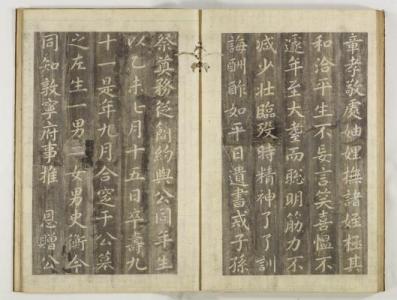 章孝敬處妯娌撫諸姪極其
和洽平生不妄言笑喜慍不
遽年至大耋而聡明筋力不
减少壯臨歿時精神了了訓
誨酬酢如平日遺書戒子孫
祭奠務從簡約與公同年生
以乙未七月十五日卒壽九
十一是年九月合窆于公墓
之左生一男二女男史衡今
同知敦寧府事推　恩贈公